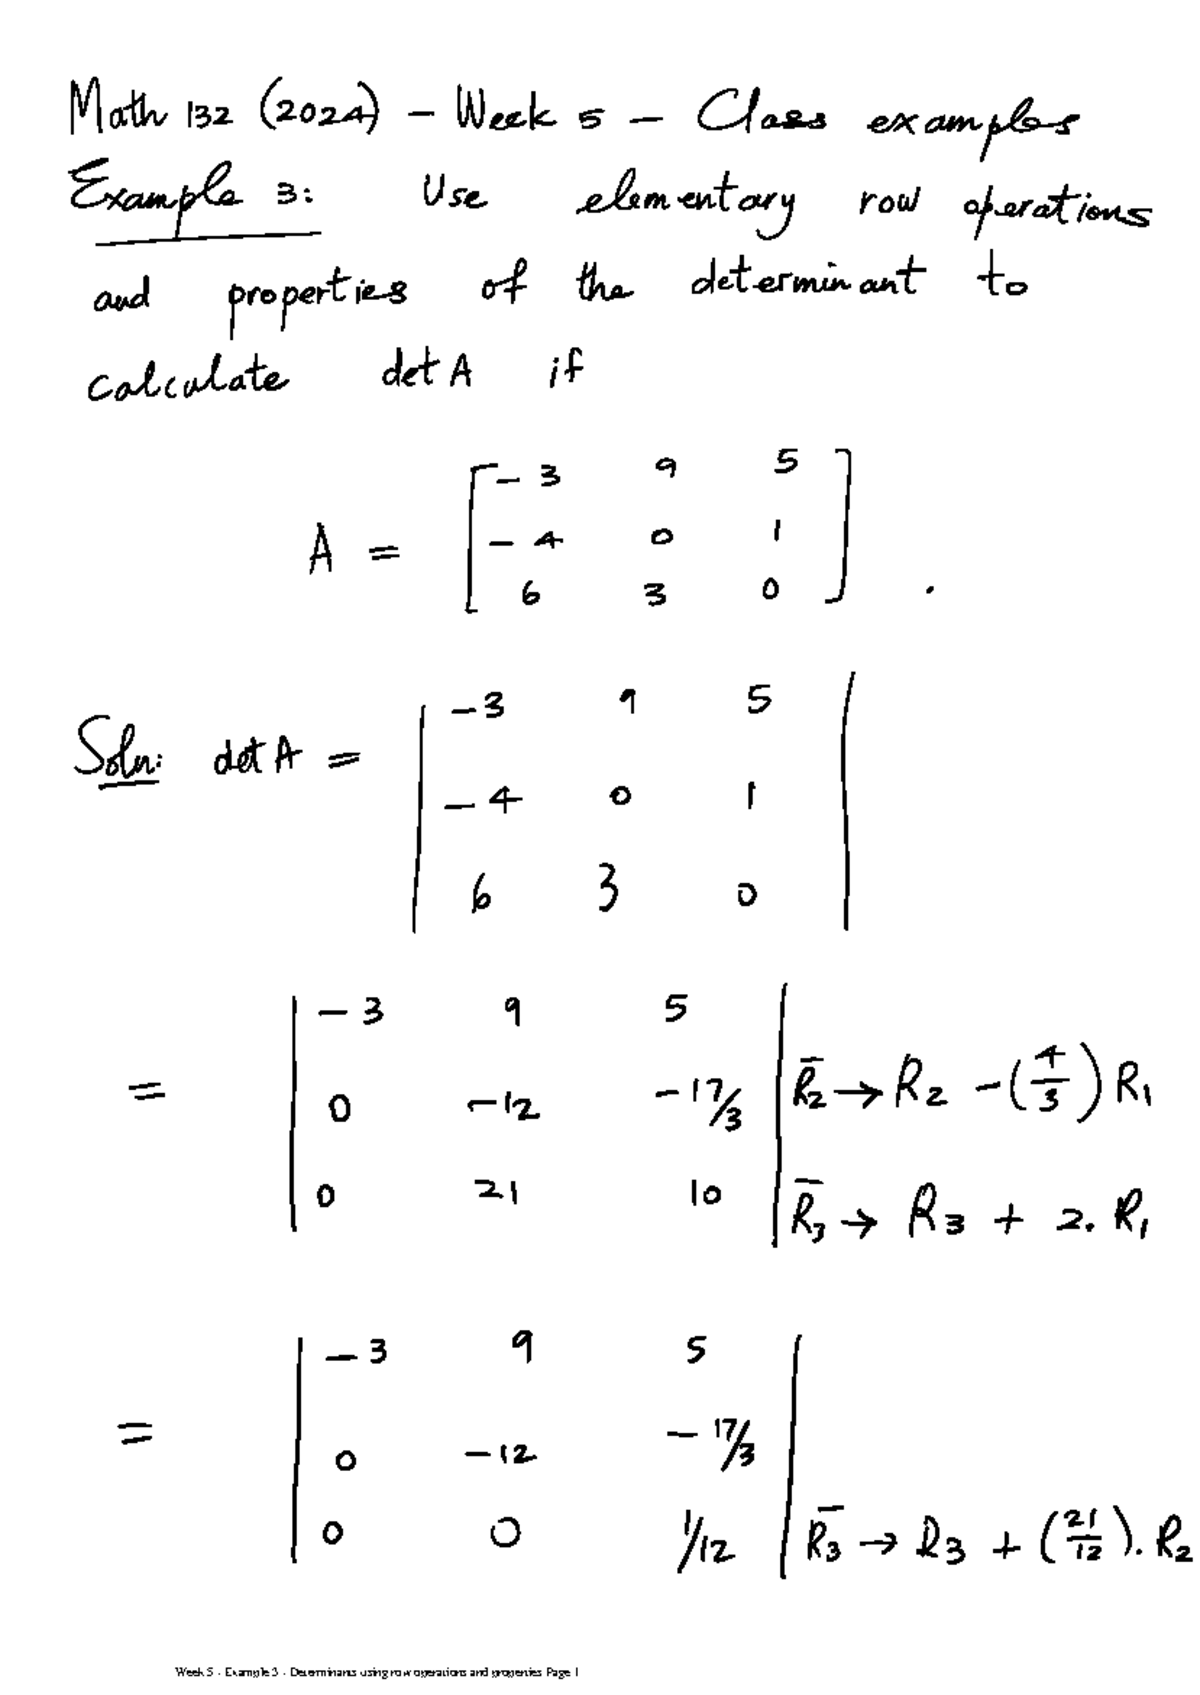 Math 132 (2024) – Week 5 – Class examples
Example 3: Use elementary row operations
and properties of the determinant to
calculate det A if
A = [ -3 9 5
-4 0 1
6 3 0 ] .
Soln: det A = | -3 9 5 |
-4 0 1
6 3 0
= | -3 9 5 |
0 -12 -17/3 R̄2 → R2 - (4/3) R1
0 21 10 R̄3 → R3 + 2. R1
= | -3 9 5 |
0 -12 -17/3
0 0 1/12 R̄3 → R3 + (21/12). R2
Week 5 - Example 3 - Determinants using row operations and properties Page 1